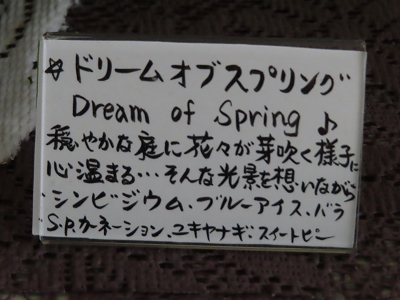 ☆ドリームオブスプリング
Dream of Spring ♪
穏やかな庭に花々が芽吹く様子に
心温まる…そんな光景を想いながら
シンビジウム、ブルーアイス、バラ
S.P.カーネーション、ユキヤナギ、スイートピー